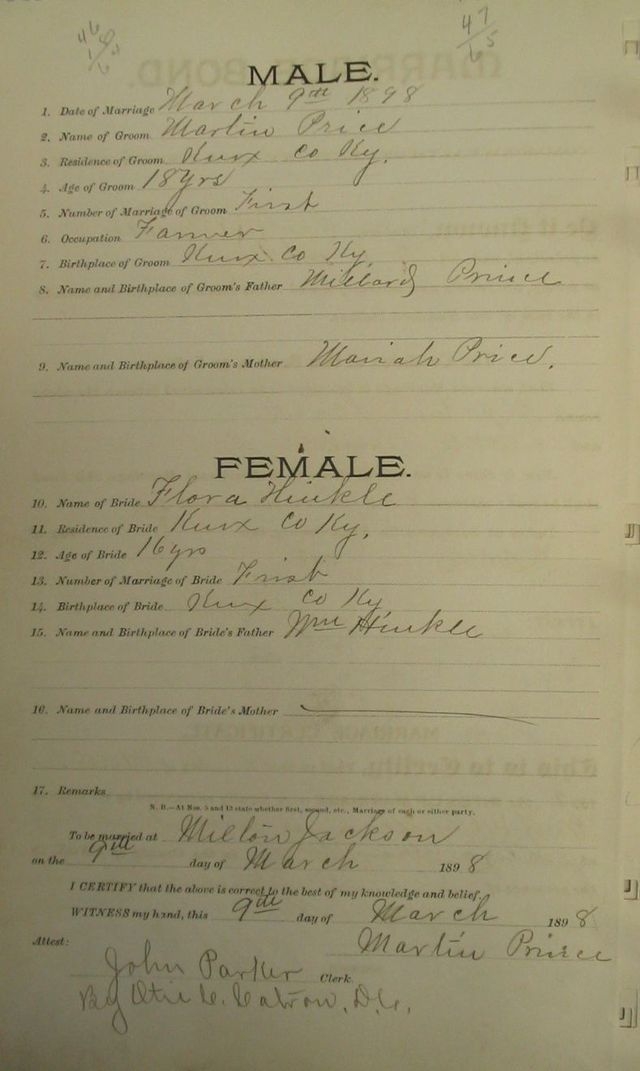 47
65
MALE.
1. Date of Marriage March 9th 1898
2. Name of Groom Martin Price
3. Residence of Groom Knox Co Ky.
4. Age of Groom 18 yrs
5. Number of Marriage of Groom First
6. Occupation Farmer
7. Birthplace of Groom Knox Co Ky.
8. Name and Birthplace of Groom's Father Millard Price
9. Name and Birthplace of Groom's Mother Mariah Price.
FEMALE.
10. Name of Bride Flora Hinkle
11. Residence of Bride Knox Co Ky.
12. Age of Bride 16 yrs
13. Number of Marriage of Bride First
14. Birthplace of Bride Knox Co Ky
15. Name and Birthplace of Bride's Father Wm Hinkle
16. Name and Birthplace of Bride's Mother
17. Remarks
N. B.—At Nos. 5 and 13 state whether first, second, etc., Marriage of each or either party.
To be married at Milton Jackson
on the 9th day of March 1898
I CERTIFY that the above is correct to the best of my knowledge and belief.
WITNESS my hand, this 9th day of March 1898
Attest: Martin Price
John Parker Clerk.
By D.C.